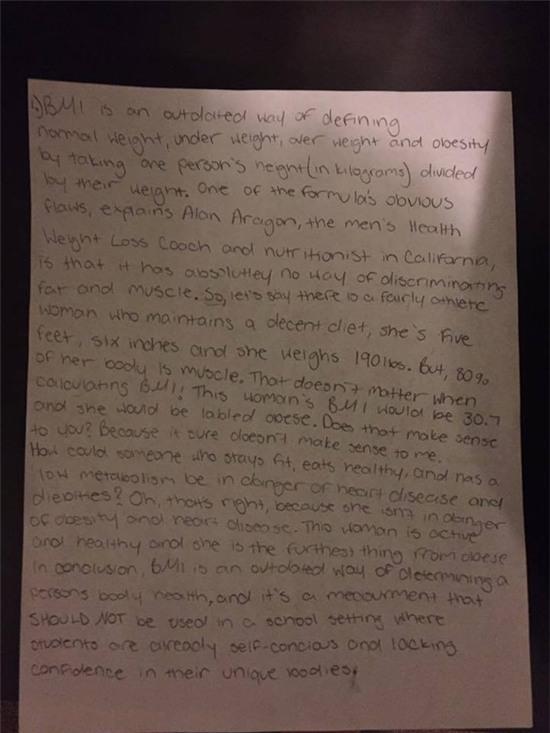 1) BMI is an outdated way of defining
normal weight, under weight, over weight and obesity
by taking one person's height (in kilograms) divided
by their weight. One of the formula's obvious
flaws, explains Alan Aragon, the men's Health
Weight Loss Coach and nutritionist in California,
is that it has absolutley no way of discriminating
fat and muscle. So, let's say there is a fairly athletic
woman who maintains a decent diet, she's five
feet, six inches and she weighs 190 lbs. But, 80%
of her body is muscle. That doesn't matter when
calculating BMI! This woman's BMI would be 30.7
and she would be labled obese. Does that make sense
to you? Because it sure doesn't make sense to me.
How could someone who stays fit, eats healthy, and has a
low metabolism be in danger of heart disease and
diebities? Oh, that's right, because she isn't in danger
of obesity and heart disease. This woman is active
and healthy and she is the furthest thing from obese
In conclusion, BMI is an outdated way of determining a
persons body health, and it's a meaurment that
SHOULD NOT be used in a school setting where
students are already self-concious and lacking
confidence in their unique bodies.